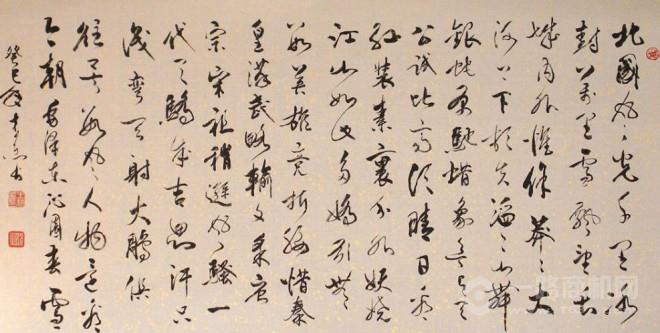 北國风光千里冰
封万里雪飄望长
城内外惟餘莽々大
河上下頓失滔々山舞
銀蛇原馳蜡象欲与天
公試比高須晴日看
紅裝素裹分外妖娆
江山如此多嬌引無
数英雄竞折腰惜秦
皇漢武略輸文采唐
宗宋祖稍遜风騷一
代天驕成吉思汗只
識彎弓射大鵰俱
往矣数风流人物還看
今朝 毛澤东沁園春雪
癸巳夏 李 书
一路商机网